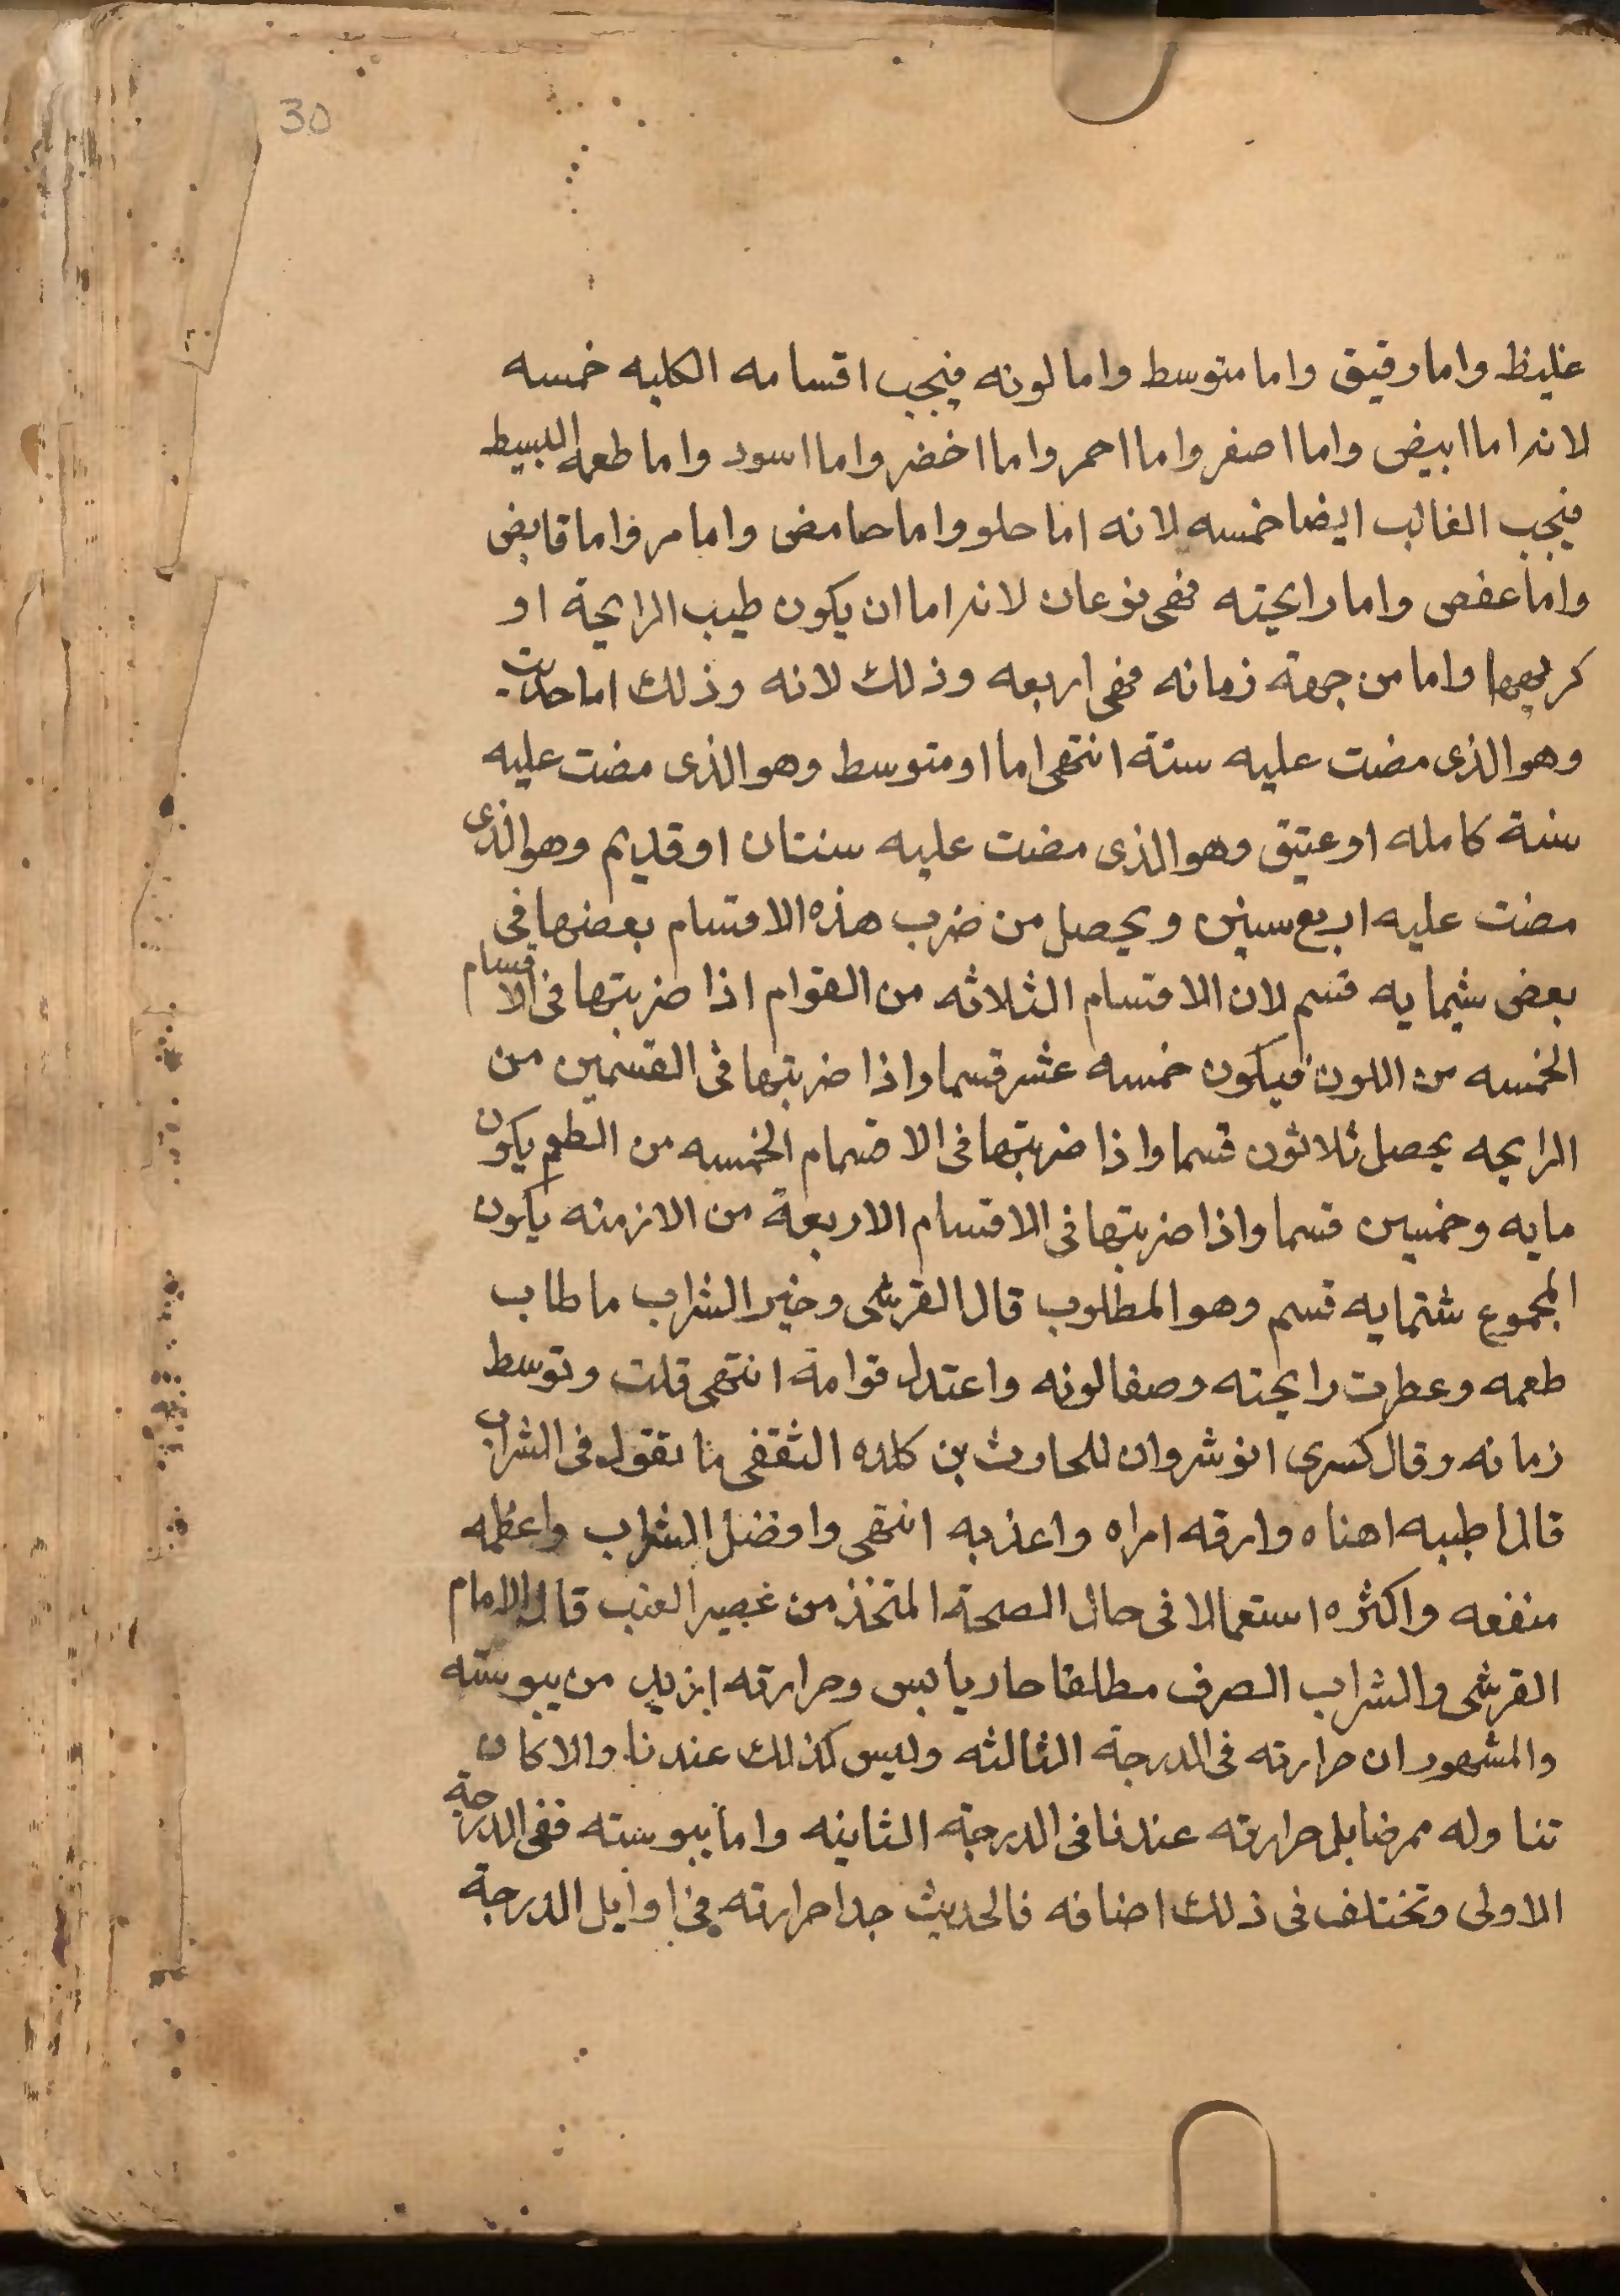 30
غليظ واما رقيق واما متوسط واما لونه فيجب اقسامه الكليه خمسه
لانه اما ابيض واما اصفر واما احمر واما اخضر واما اسود واما طعمه البسيط
فيجب الغالب ايضا خمسه لانه اما حلو واما حامض واما مر واما قابض
واما عفص واما رايحته فهى نوعان لانه اما ان يكون طيب الرايحة او
كريهها واما من جهة زمانه فهى اربعه وذلك لانه وذلك اما حديث
وهو الذى مضت عليه ستة انتهى اما او متوسط وهو الذى مضت عليه
سنة كامله او عتيق وهو الذى مضت عليه سنتان او قديم وهو الذى
مضت عليه اربع سنين ويحصل من ضرب هذه الاقسام بعضها فى
بعض ستمايه قسم لان الاقسام الثلاثه من القوام اذا ضربتها فى الاقسام
الخمسه من اللون فيكون خمسه عشر قسما واذا ضربتها فى القسمين من
الرايحه يحصل ثلاثون قسما واذا ضربتها فى الاقسام الخمسه من الطعم يكون
مايه وخمسين قسما واذا ضربتها فى الاقسام الاربعة من الازمنه يكون
المجموع ستمايه قسم وهو المطلوب قال القرشى وخير الشراب ما طاب
طعمه وعطرت رايحته وصفا لونه واعتدل قوامه انتهى قلت وتوسط
زمانه وقال كسرى انوشروان للحارث بن كلده الثقفى ما تقول فى الشراب
قال اطيبه اهناه وارقه امراه واعذبه انتهى وافضل الشراب واعظمه
منفعه واكثره استعمالا فى حال الصحة المتخذ من عصير العنب قال الامام
القرشى والشراب الصرف مطلقا حار يابس وحرارته ازيد من يبوسته
والمشهور ان حرارته فى الدرجة الثالثه وليس كذلك عندنا والا كان
تناوله ممرضا بل حرارته عندنا فى الدرجة الثانيه واما يبوسته ففى الدرجة
الاولى وتختلف فى ذلك اصنافه فالحديث جدا حرارته فى اوايل الدرجة